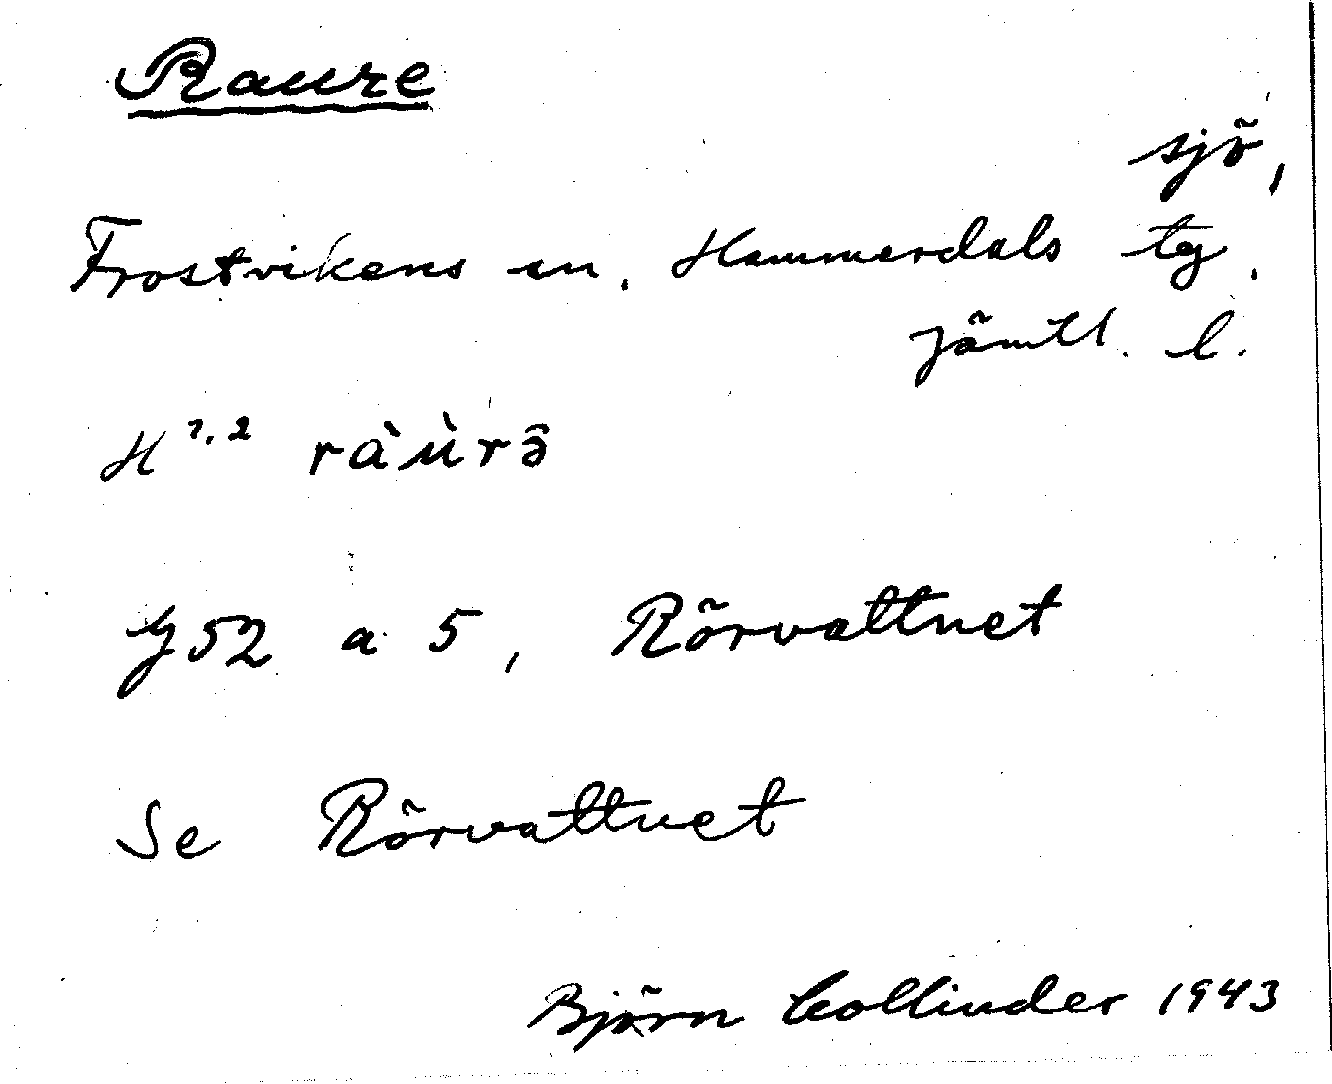 Raure
sjö,
Frostvikens sn. Hammerdals tg.
Jämtl. l.
H 7.2 ràùrə̂
G 52 a 5, Rörvattnet
Se Rörvattnet
Björn Collinder 1943